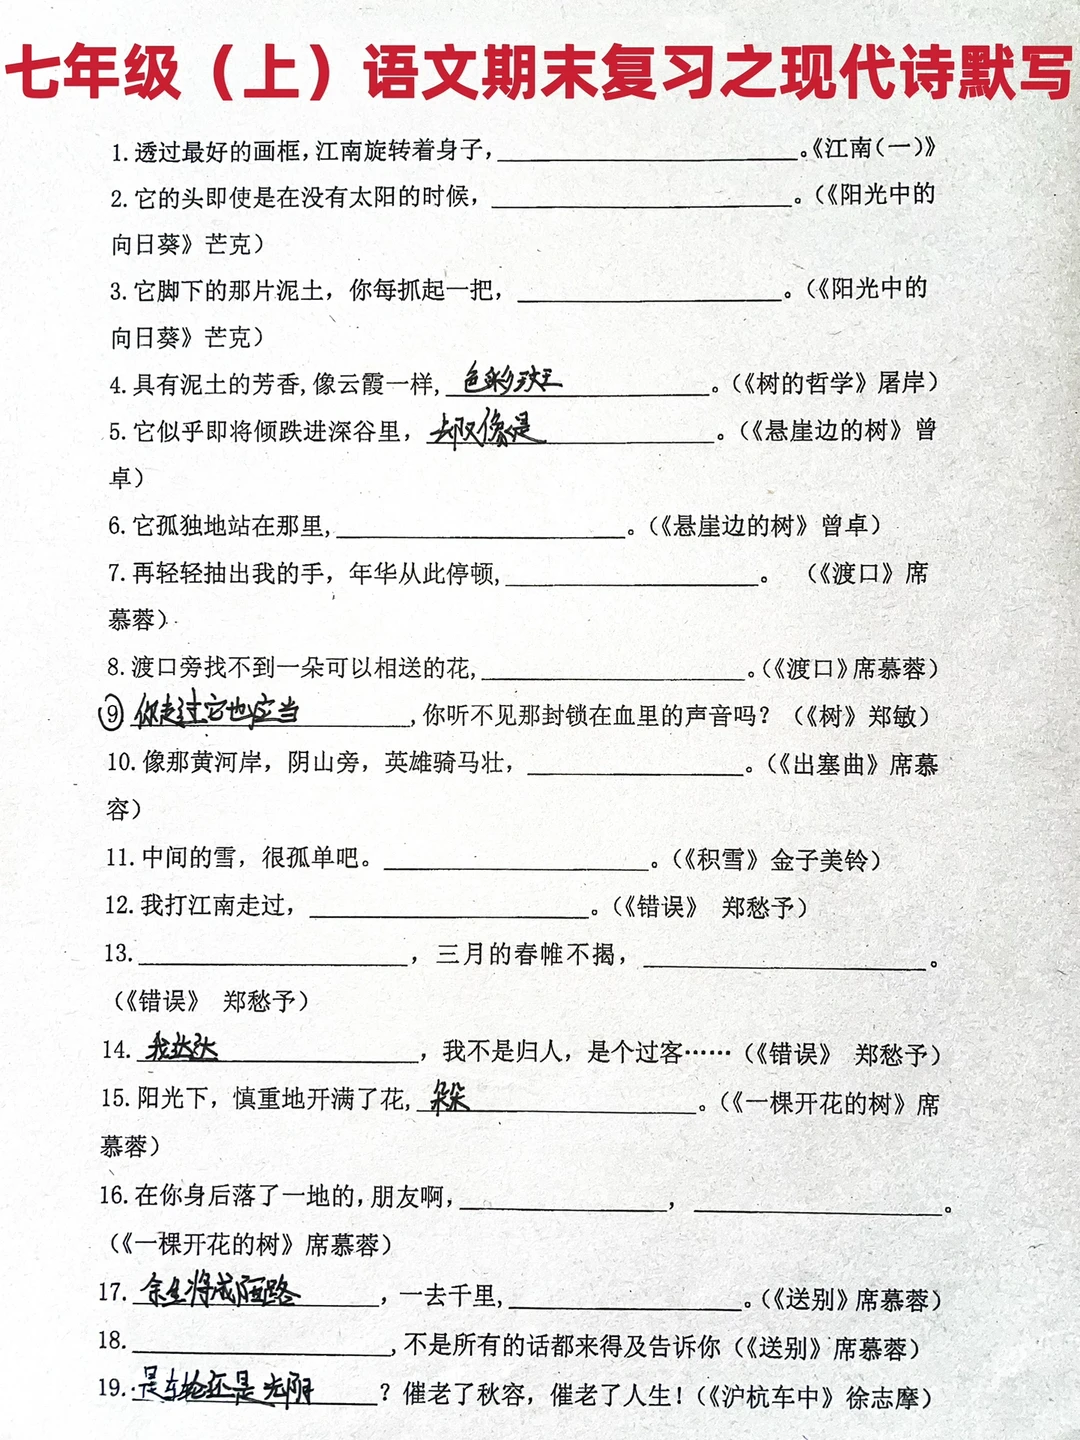 七年级（上）语文期末复习之现代诗默写
1.透过最好的画框,江南旋转着身子,____________。《江南(一)》
2.它的头即使是在没有太阳的时候，____________。（《阳光中的
向日葵》芒克）
3.它脚下的那片泥土，你每抓起一把，____________。（《阳光中的
向日葵》芒克）
4.具有泥土的芳香,像云霞一样,色彩斑____________。（《树的哲学》屠岸）
5.它似乎即将倾跌进深谷里，却又像是____________。（《悬崖边的树》曾
卓）
6.它孤独地站在那里,____________。（《悬崖边的树》曾卓）
7.再轻轻抽出我的手，年华从此停顿,____________。 （《渡口》席
慕蓉）
8.渡口旁找不到一朵可以相送的花,____________。（《渡口》席慕蓉）
⑨你走过它也应当____________,你听不见那封锁在血里的声音吗？（《树》郑敏）
10.像那黄河岸，阴山旁，英雄骑马壮，____________。（《出塞曲》席慕
容）
11.中间的雪，很孤单吧。____________。（《积雪》金子美铃）
12.我打江南走过，____________。（《错误》 郑愁予）
13.____________，三月的春帷不揭，____________。
（《错误》 郑愁予）
14.我达达____________，我不是归人，是个过客……（《错误》 郑愁予）
15.阳光下，慎重地开满了花,朵朵____________。（《一棵开花的树》席
慕蓉）
16.在你身后落了一地的,朋友啊,____________，____________。
（《一棵开花的树》席慕蓉）
17.余生将成陌路，一去千里,____________。（《送别》席慕蓉）
18.____________,不是所有的话都来得及告诉你（《送别》席慕蓉）
19.是车轮还是光阴？催老了秋容，催老了人生！（《沪杭车中》徐志摩）